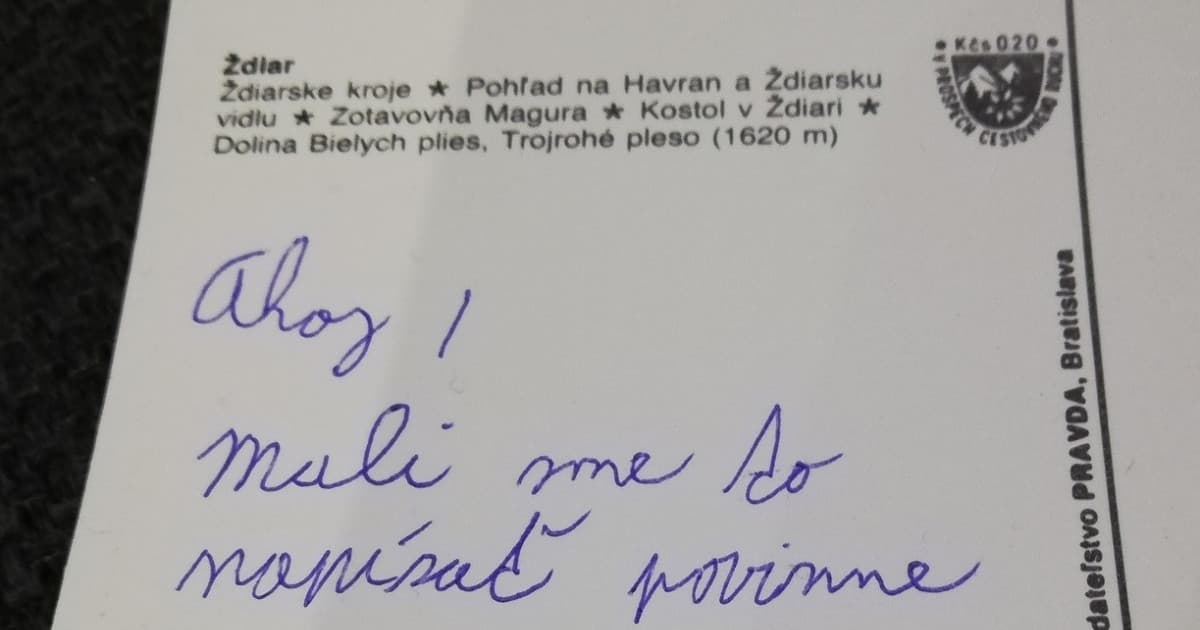 Ždiar
Ždiarske kroje ★ Pohľad na Havran a Ždiarsku
vidlu ★ Zotavovňa Magura ★ Kostol v Ždiari ★
Dolina Bielych plies, Trojrohé pleso (1620 m)
• Kčs 020 •
V PROSPECH CESTOVNÉHO RUCHU
Ahoj!
Mali sme to
napísať povinne
dateľstvo PRAVDA, Bratislava